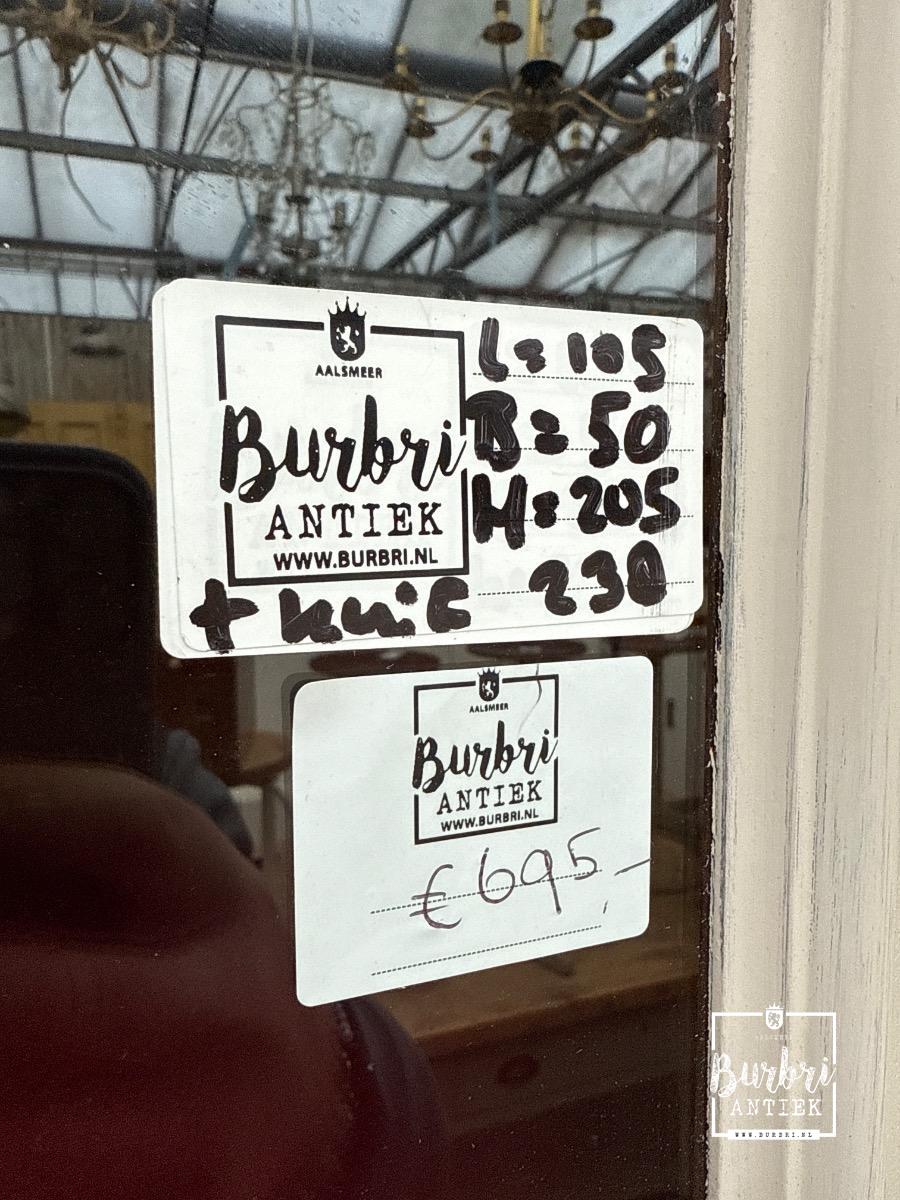 AALSMEER
Burbri
ANTIEK
WWW.BURBRI.NL
L=105
B=50
H=205
+ kuif 230
AALSMEER
Burbri
ANTIEK
WWW.BURBRI.NL
€ 695,-
Burbri
ANTIEK
WWW.BURBRI.NL